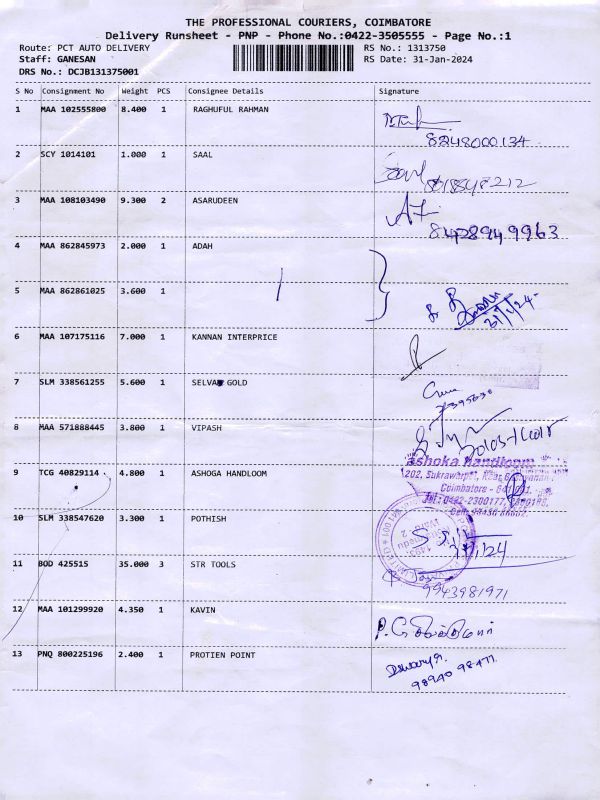 THE PROFESSIONAL COURIERS, COIMBATORE
Delivery Runsheet - PNP - Phone No.:0422-3505555 - Page No.:1
Route: PCT AUTO DELIVERY RS No.: 1313750
Staff: GANESAN RS Date: 31-Jan-2024
DRS No.: DCJB131375001
S No Consignment No Weight PCS Consignee Details Signature
1 MAA 102555800 8.400 1 RAGHUFUL RAHMAN
8248000134
2 SCY 1014101 1.000 1 SAAL
3 MAA 108103490 9.300 2 ASARUDEEN
8428949963
4 MAA 862845973 2.000 1 ADAH
5 MAA 862861025 3.600 1
31/1/24
6 MAA 107175116 7.000 1 KANNAN INTERPRICE
7 SLM 338561255 5.600 1 SELVAM GOLD
8 MAA 571888445 3.800 1 VIPASH
ashoka handloom
9 TCG 40829114 4.800 1 ASHOGA HANDLOOM
202, Sukrawarpet,
Coimbatore - 641 001.
Tel : 0422-2300177,
10 SLM 338547620 3.300 1 POTHISH
11 BOD 425515 35.000 3 STR TOOLS
9943981971
12 MAA 101299920 4.350 1 KAVIN
13 PNQ 800225196 2.400 1 PROTIEN POINT
98940 98477